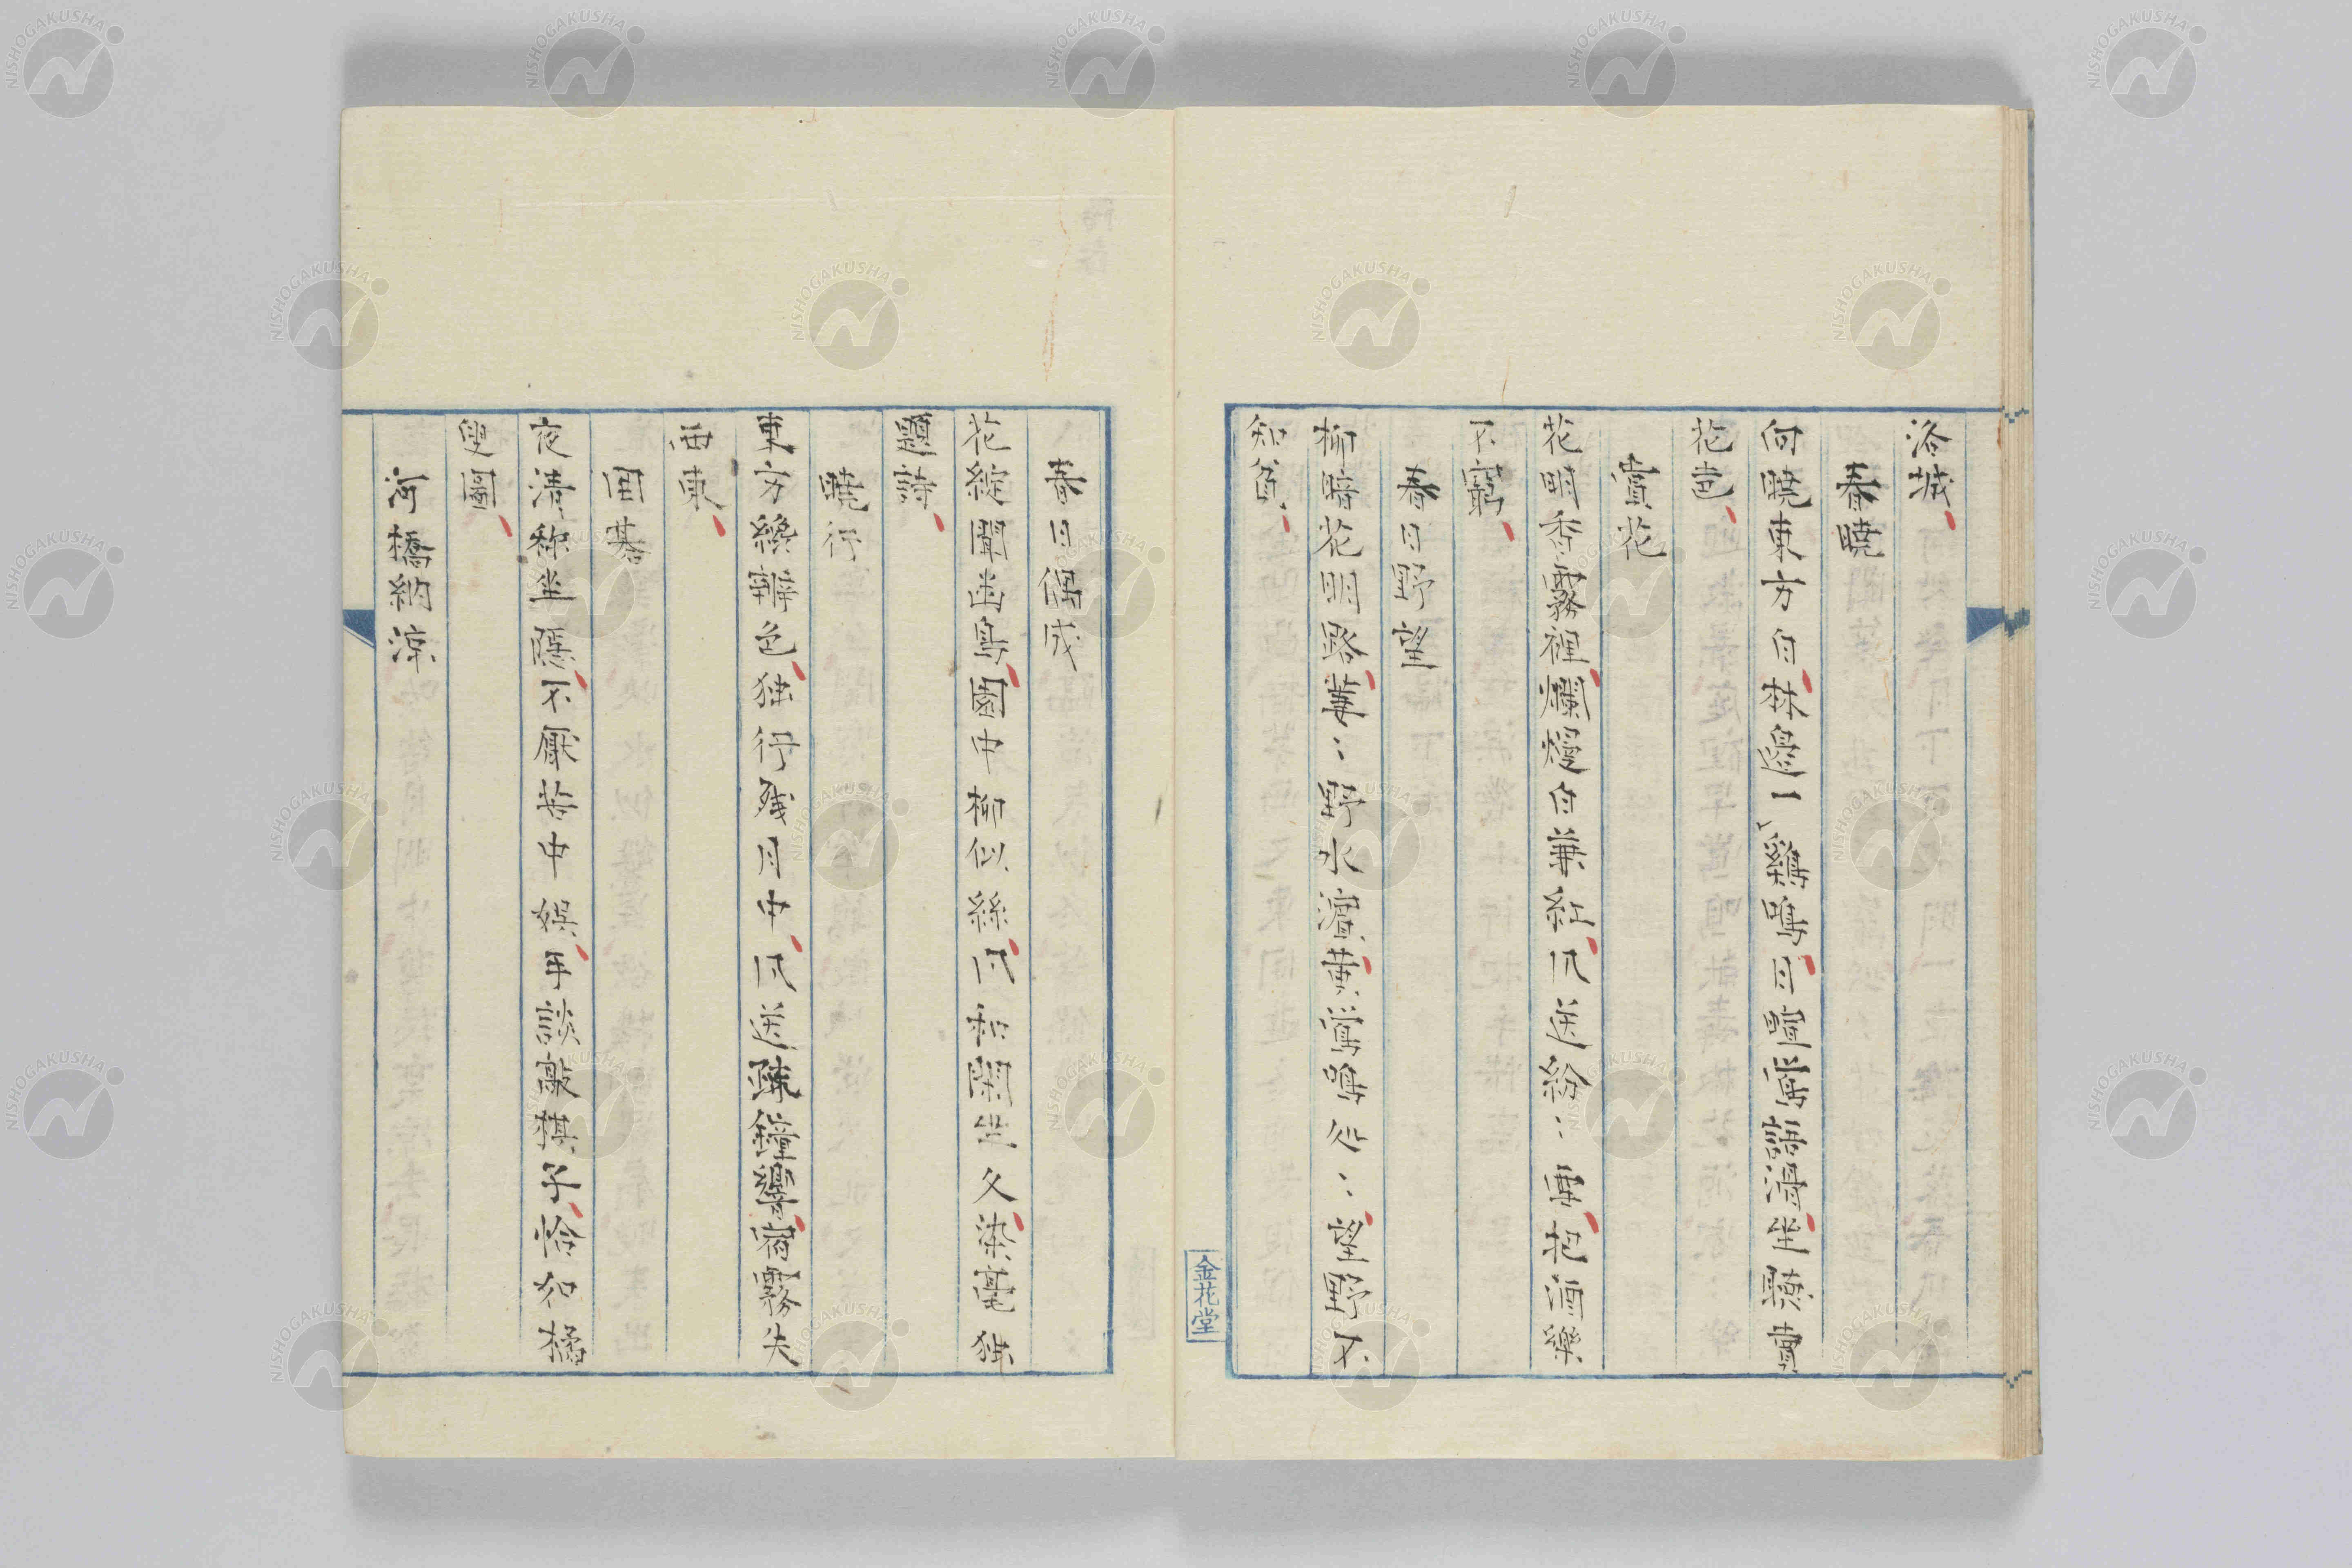 洛城
春曉
向曉東方白林邊一雞鳴月殘鶯語滑坐聽賣
花聲
賞花
花明香霧裡爛熳白兼紅風送紛〻再把酒樂
不窮
春日野望
柳暗花明路萋〻野水濱黃鶯鳴〻望野不
知貧
金花堂
春日偶成
花綻聞幽鳥園中柳似絲風和閑坐久染毫独
題詩
曉行
東方纔辨色独行残月中風送疎鐘響宿霧失
西東
囲棊
夜清称坐隱不厭苦中娯手談敲棋子恰和橘
叟圖
河橋納涼
NISHOGAKUSHA